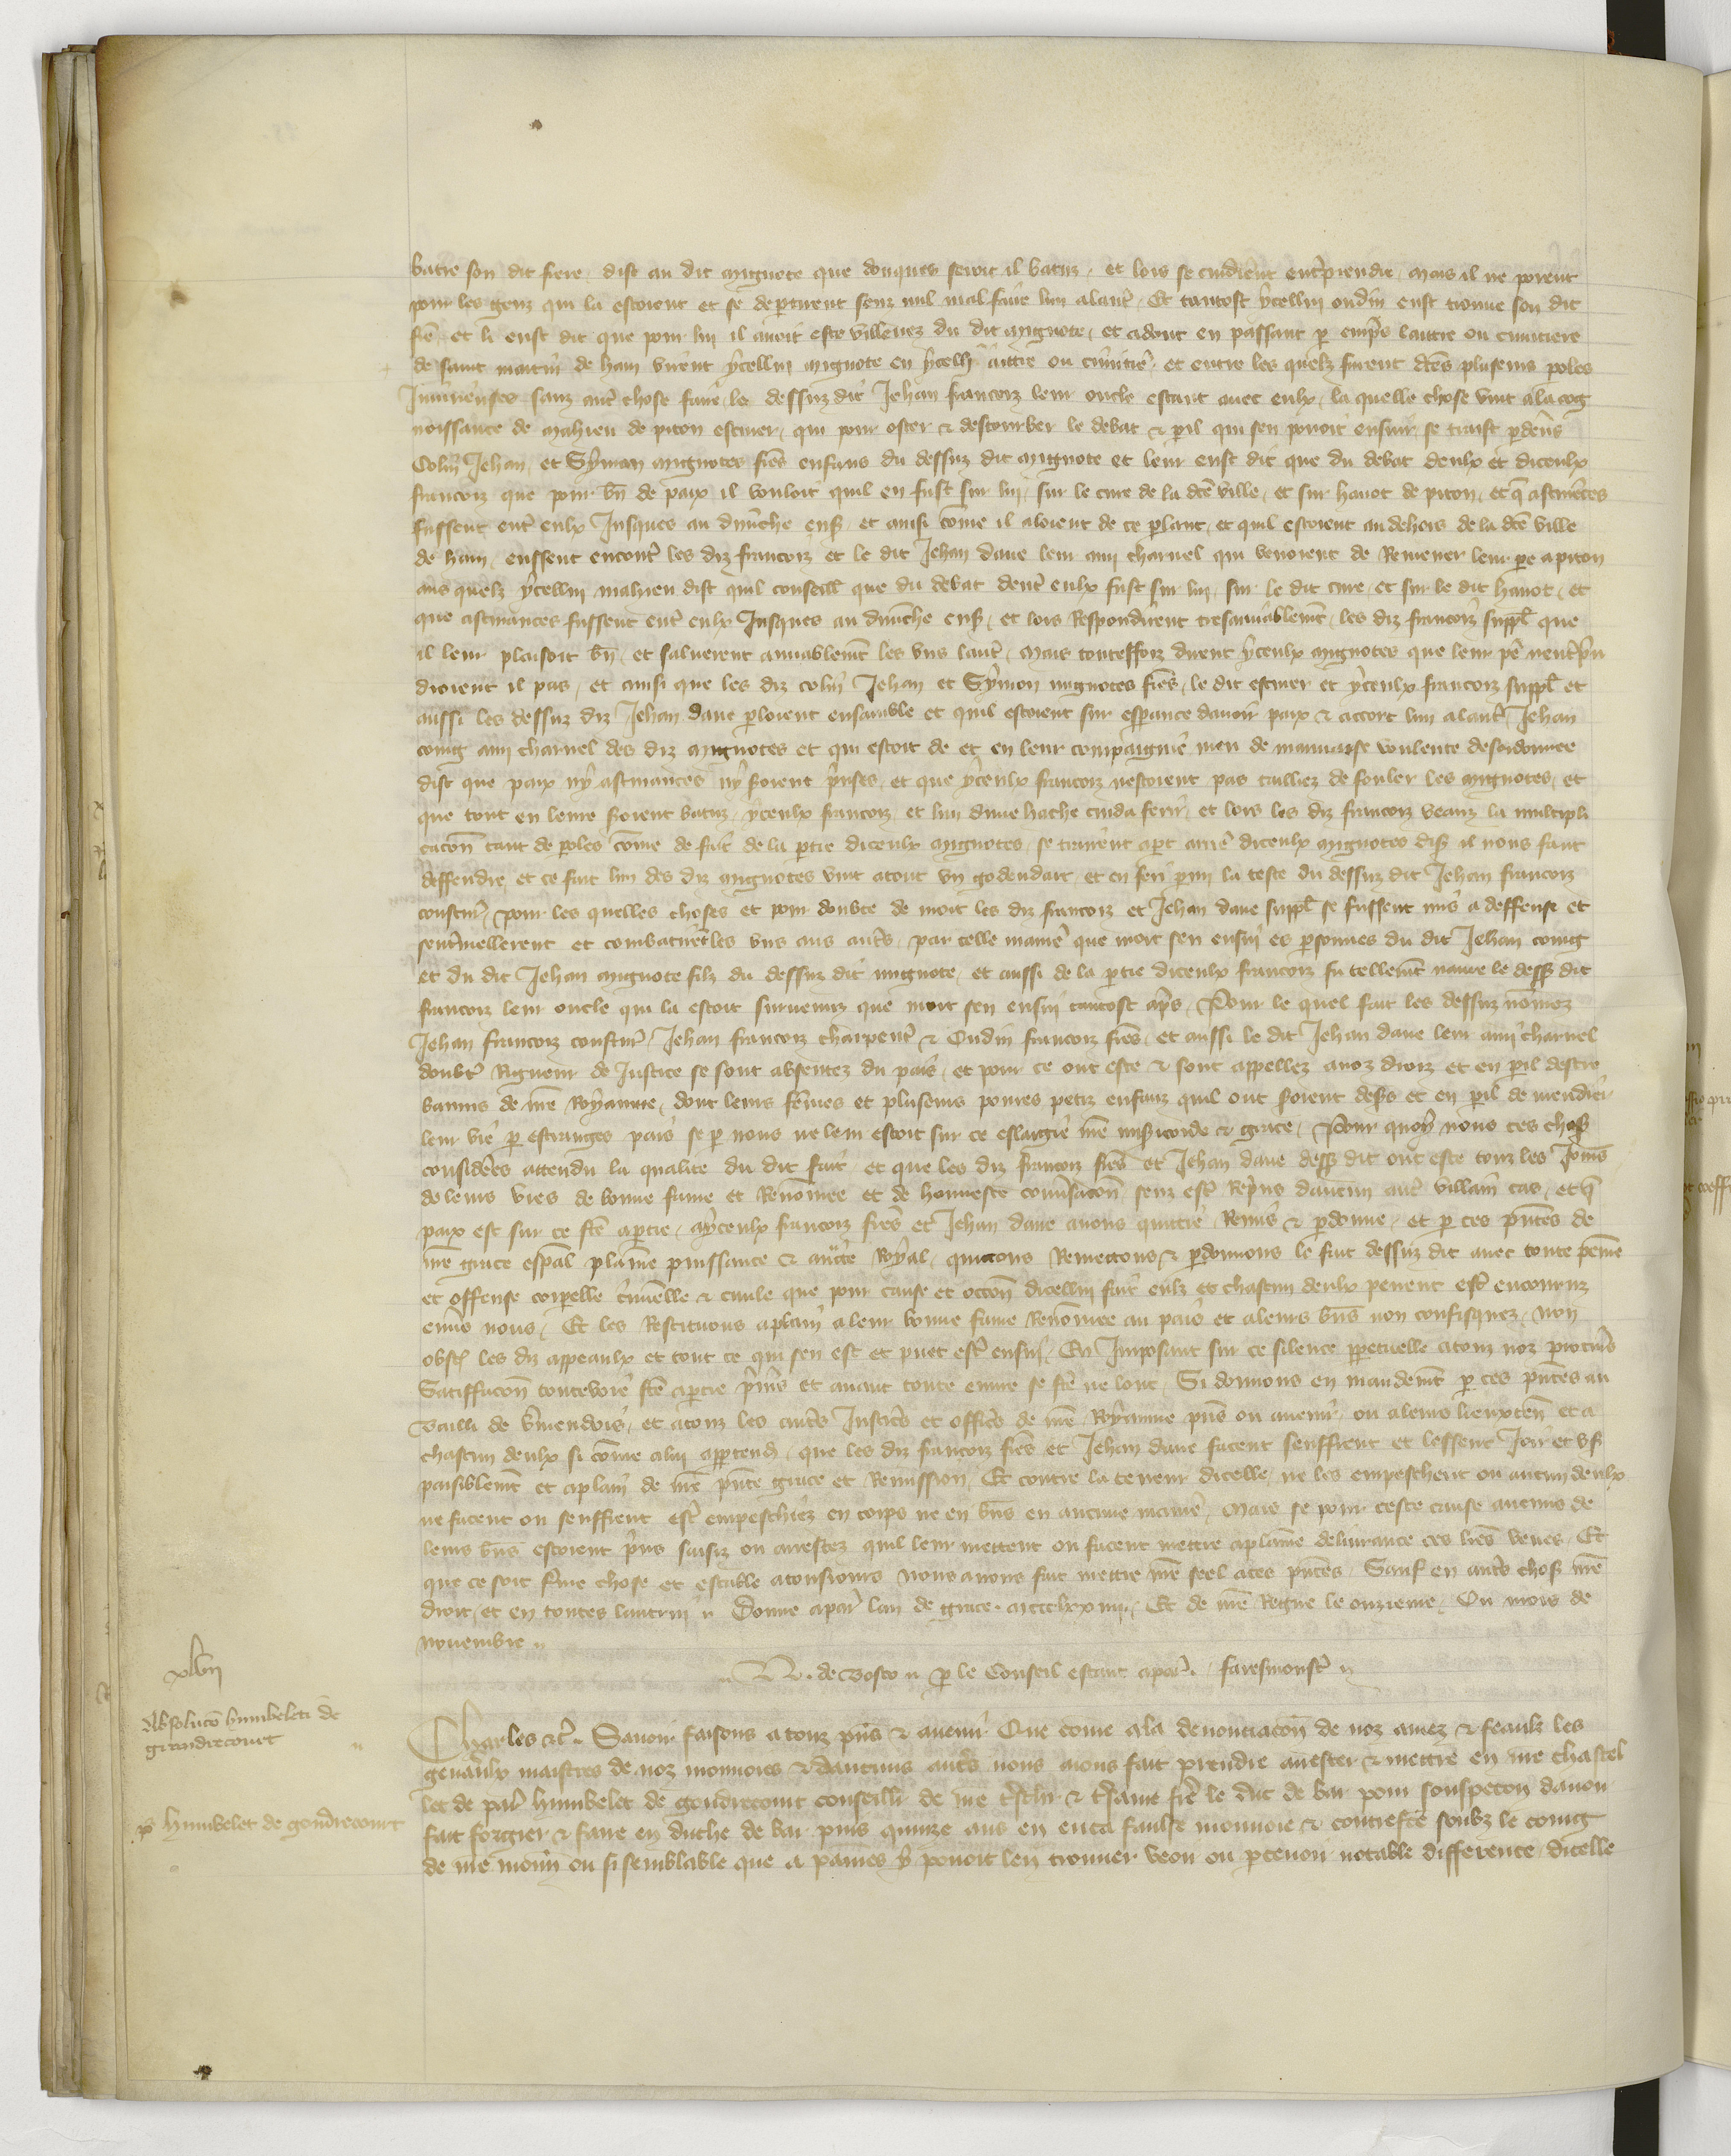 batre son dit frere dist au dit mignote que donques seroit il batuz et lors se cuidierent entreprendre mais il ne porent
pour les genz qui la estoient et se departirent senz nul mal faire lun a lautre Et tantost ycellui oudin eust trouve son dit
frere et li eust dit que pour lui il avoit este villenez du dit mignote et adont en passant par empres laittre ou cimitiere
de saint martin de ham virent ycellui mignote en ycelli aittre ou cimitiere et entre les quelz furent dites pluseurs paroles
Iniurieuses sanz autre chose faire le dessuz dit Jehan francoiz leur oncle estant avec eulx la quelle chose vint a la cog
noissance de mahieu de piton escuier qui pour oster & destourber le debat & peril qui sen povoit ensuir se traist par devers
Colin Jehan et Symon mignotes freres enfans du dessuz dit mignote et leur eust dit que du debat deulx et diceulx
francoiz que pour bien de paix il vouloit quil en fust sur lui sur le cure de la dite ville et sur havot de piton et que astinences
fussent entre eulx Jusques au dimenche ensuivant et ainsi comme il aloient de ce parlant et quil estoient au dehors de la dite ville
de ham eussent encontre les diz francoiz et le dit Jehan dave leur ami charnel qui venoient de Remener leur pere a piton
aus quelz ycellui mahieu dist quil conseille que du debat dentre eulx fust sur lui sur le dit cure et sur le dit havot et
que astinances fussent entre eulx Jusques au dimenche ensuivant et lors Respondirent tresamiablement les diz francoiz suppl que
il leur plaisoit bien et saluerent amiablement les uns lautre Mais touteffoiz dirent yceulx mignotes que leur pere
diroient il pas et ainsi que les diz colin Jehan et Symon mignotes freres le dit escuier et yceulx francoiz suppl et
aussi les dessuz diz Jehan dave parloient ensamble et quil estoient sur esperance davoir paix & accort lun a lautre Jehan
coing ami charnel des diz mignotes et qui estoit de et en leur compaignie meu de mauvaise voulente desordonnee
dist que paix ny astinances ny seroient prises et que yceulx francoiz nestoient pas tailliez de fouler les mignotes et
que tout en leure seroient batuz yceulx francoiz et lun dune hache cuida ferir et lors les diz francoiz veanz la multipli
cacion tant de paroles comme de fait de la partie diceulx mignotes se trairent apart arriere diceulx mignotes disant il nous faut
deffendre et ce fait lun des diz mignotes vint atout un godendart et en feri parmi la teste du dessuz dit Jehan francoiz
cousturier pour les quelles choses et pour doubte de mort les diz francoiz et Jehan dave suppl se fussent mis a deffense et
sentremellerent et combatirent les uns aus autres par telle maniere que mort sen ensui es personnes du dit Jehan coing
et du dit Jehan mignote filz du dessuz dit mignote et aussi de la partie diceulx francoiz fu tellement navre le dessus dit
francoiz leur oncle qui la estoit survenuz que mort sen ensui tantost apres Pour le quel fait les dessuz nommez
Jehan francoiz cousturier Jehan francoiz charpentier & Oudin francoiz freres et aussi le dit Jehan dave leur ami charnel
doubtans Rigueur de Justice se sont absentez du pais et pour ce ont este & sont appellez a noz droiz et en peril destre
bannis de nostre Royaume dont leurs femmes et pluseurs povres petiz enfanz quil ont seroient desers et en peril de mendier
leur vie par estranges pais se par nous ne leur estoit sur ce eslargie nostre misericorde & grace Pour quoy nous ces choses
considerees attendu la qualite du dit fait et que les diz francoiz freres et Jehan dave dessus dit ont este touz les Jours
de leurs vies de bonne fame et Renommee et de honneste conversacion senz estre Repris daucun autre villain cas et que
paix est sur ce faite a partie a yceulx francoiz freres et Jehan dave avons quittie Remis & pardonne et par ces presentes de
nostre grace especial plaine puissance & auctorite Royal quittons Remettons & pardonnons le fait dessuz dit avec toute peine
et offense corporelle criminelle & civile que pour cause et occasion dicellui fait eulz et chascun deulx pevent estre encouruz
envers nous Et les Restituons a plain a leur bonne fame Renommee au pais et a leurs biens non confisquez Non
obstant les diz appeaulx et tout ce qui sen est et puet estre ensui En Imposant sur ce silence perpetuelle a touz noz procureurs
Satiffacion toutevoie faite a partie premiers et avant toute euvre se faite ne lont Si donnons en mandement par ces presentes au
Bailli de Vermendois et a touz les autres Justiciers et officiers de nostre Royaume presens ou avenir ou a leurs lieuxtenans et a
chascun deulx si comme a lui appartendra que les diz francoiz freres et Jehan dave facent seuffrent et lessent Joir et user
paisiblement et a plain de nostre presente grace et Remission Et contre la teneur dicelle ne les empeschent ou aucun deulx
ne facent ou seuffrent estre empeschiez en corps ne en biens en aucune maniere Mais se pour ceste cause aucuns de
leurs biens estoient pris saisiz ou arrestez quil leur mettent ou facent mettre a plaine delivrance ces lettres veues Et
que ce soit ferme chose et estable a tousiours nous avons fait mettre nostre seel a ces presentes Sauf en autres choses nostre
droit et en toutes lautrui Donne a paris lan de grace mccclxxiiii Et de nostre Regne le onzieme Ou mois de
novembre
N. de Bosco par le Conseil estant a paris. Faresmonstier
xlvii
Absolucio humbeleti de
gondrecourt
Charles etc. Savoir faisons a touz presens & avenir Que comme a la denonciacion de noz amez & feaulz les
generaulx maistres de noz monnoies & daucuns autres nous aions fait prendre arrester & mettre en nostre chastel
let de paris humbelet de gondrecourt conseillier de nostre treschier & tresame frere le duc de bar pour souspecon davoir
pour humbelet de gondrecourt
fait forgier & faire en duche de bar puis quinze ans en enca faulse monnoie & contrefaite soubz le coing
de nostre monnoie ou si semblable que a paines y povoit len trouver veoir ou percevoir notable difference dicelle